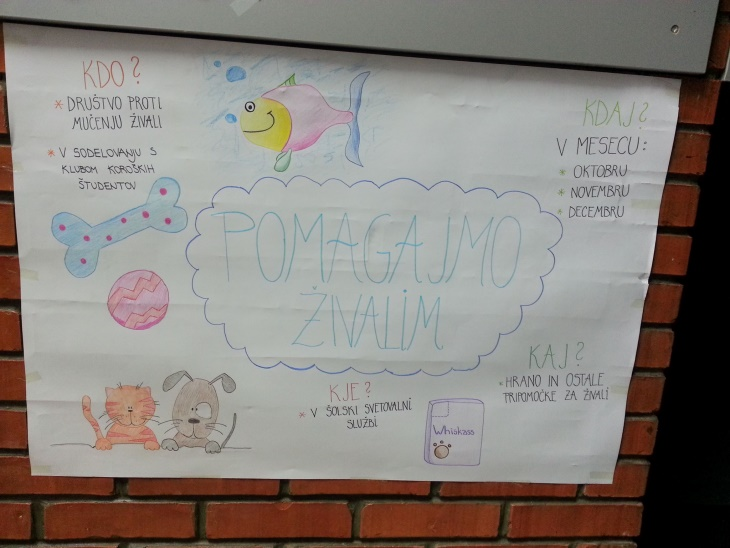 KDO?
* DRUŠTVO PROTI
MUČENJU ŽIVALI
* V SODELOVANJU S
KLUBOM KOROŠKIH
ŠTUDENTOV
KDAJ?
V MESECU:
* OKTOBRU
* NOVEMBRU
* DECEMBRU
POMAGAJMO
ŽIVALIM
KJE?
* V ŠOLSKI SVETOVALNI
SLUŽBI
Whiskass
KAJ?
* HRANO IN OSTALE
PRIPOMOČKE ZA ŽIVALI